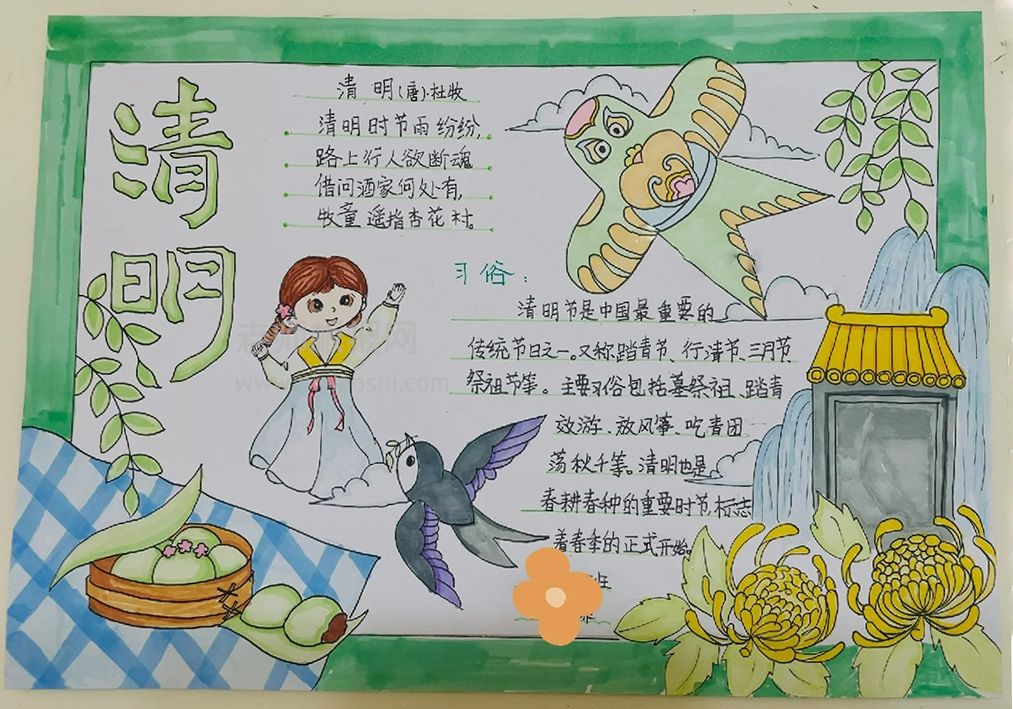 清明
清 明(唐)·杜牧
清明时节雨纷纷,
路上行人欲断魂
借问酒家何处有,
牧童遥指杏花村。
习俗:
清明节是中国最重要的
传统节日之一。又称踏青节、行清节、三月节
祭祖节等。主要习俗包括墓祭祖、踏青
效游、放风筝、吃青团
荡秋千等。清明也是
春耕春种的重要时节,标志
着春季的正式开始。
班